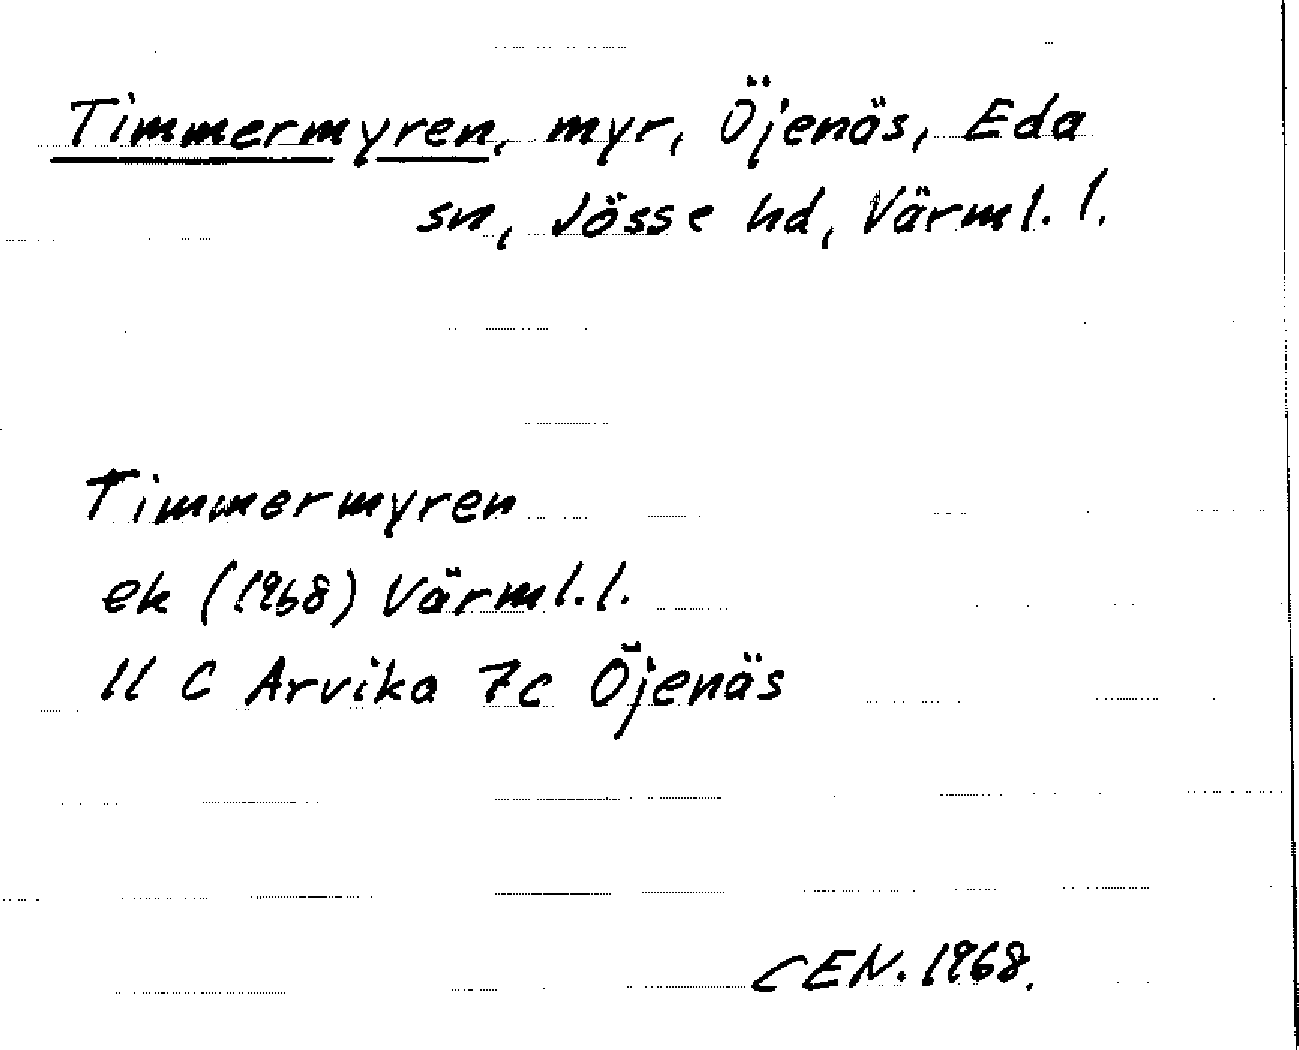 Timmermyren, myr, Öjenäs, Eda
sn, Jösse hd, Värml. l.
Timmermyren
ek (1968) Värml.l.
11 C Arvika 7c Öjenäs
CEN. 1968.